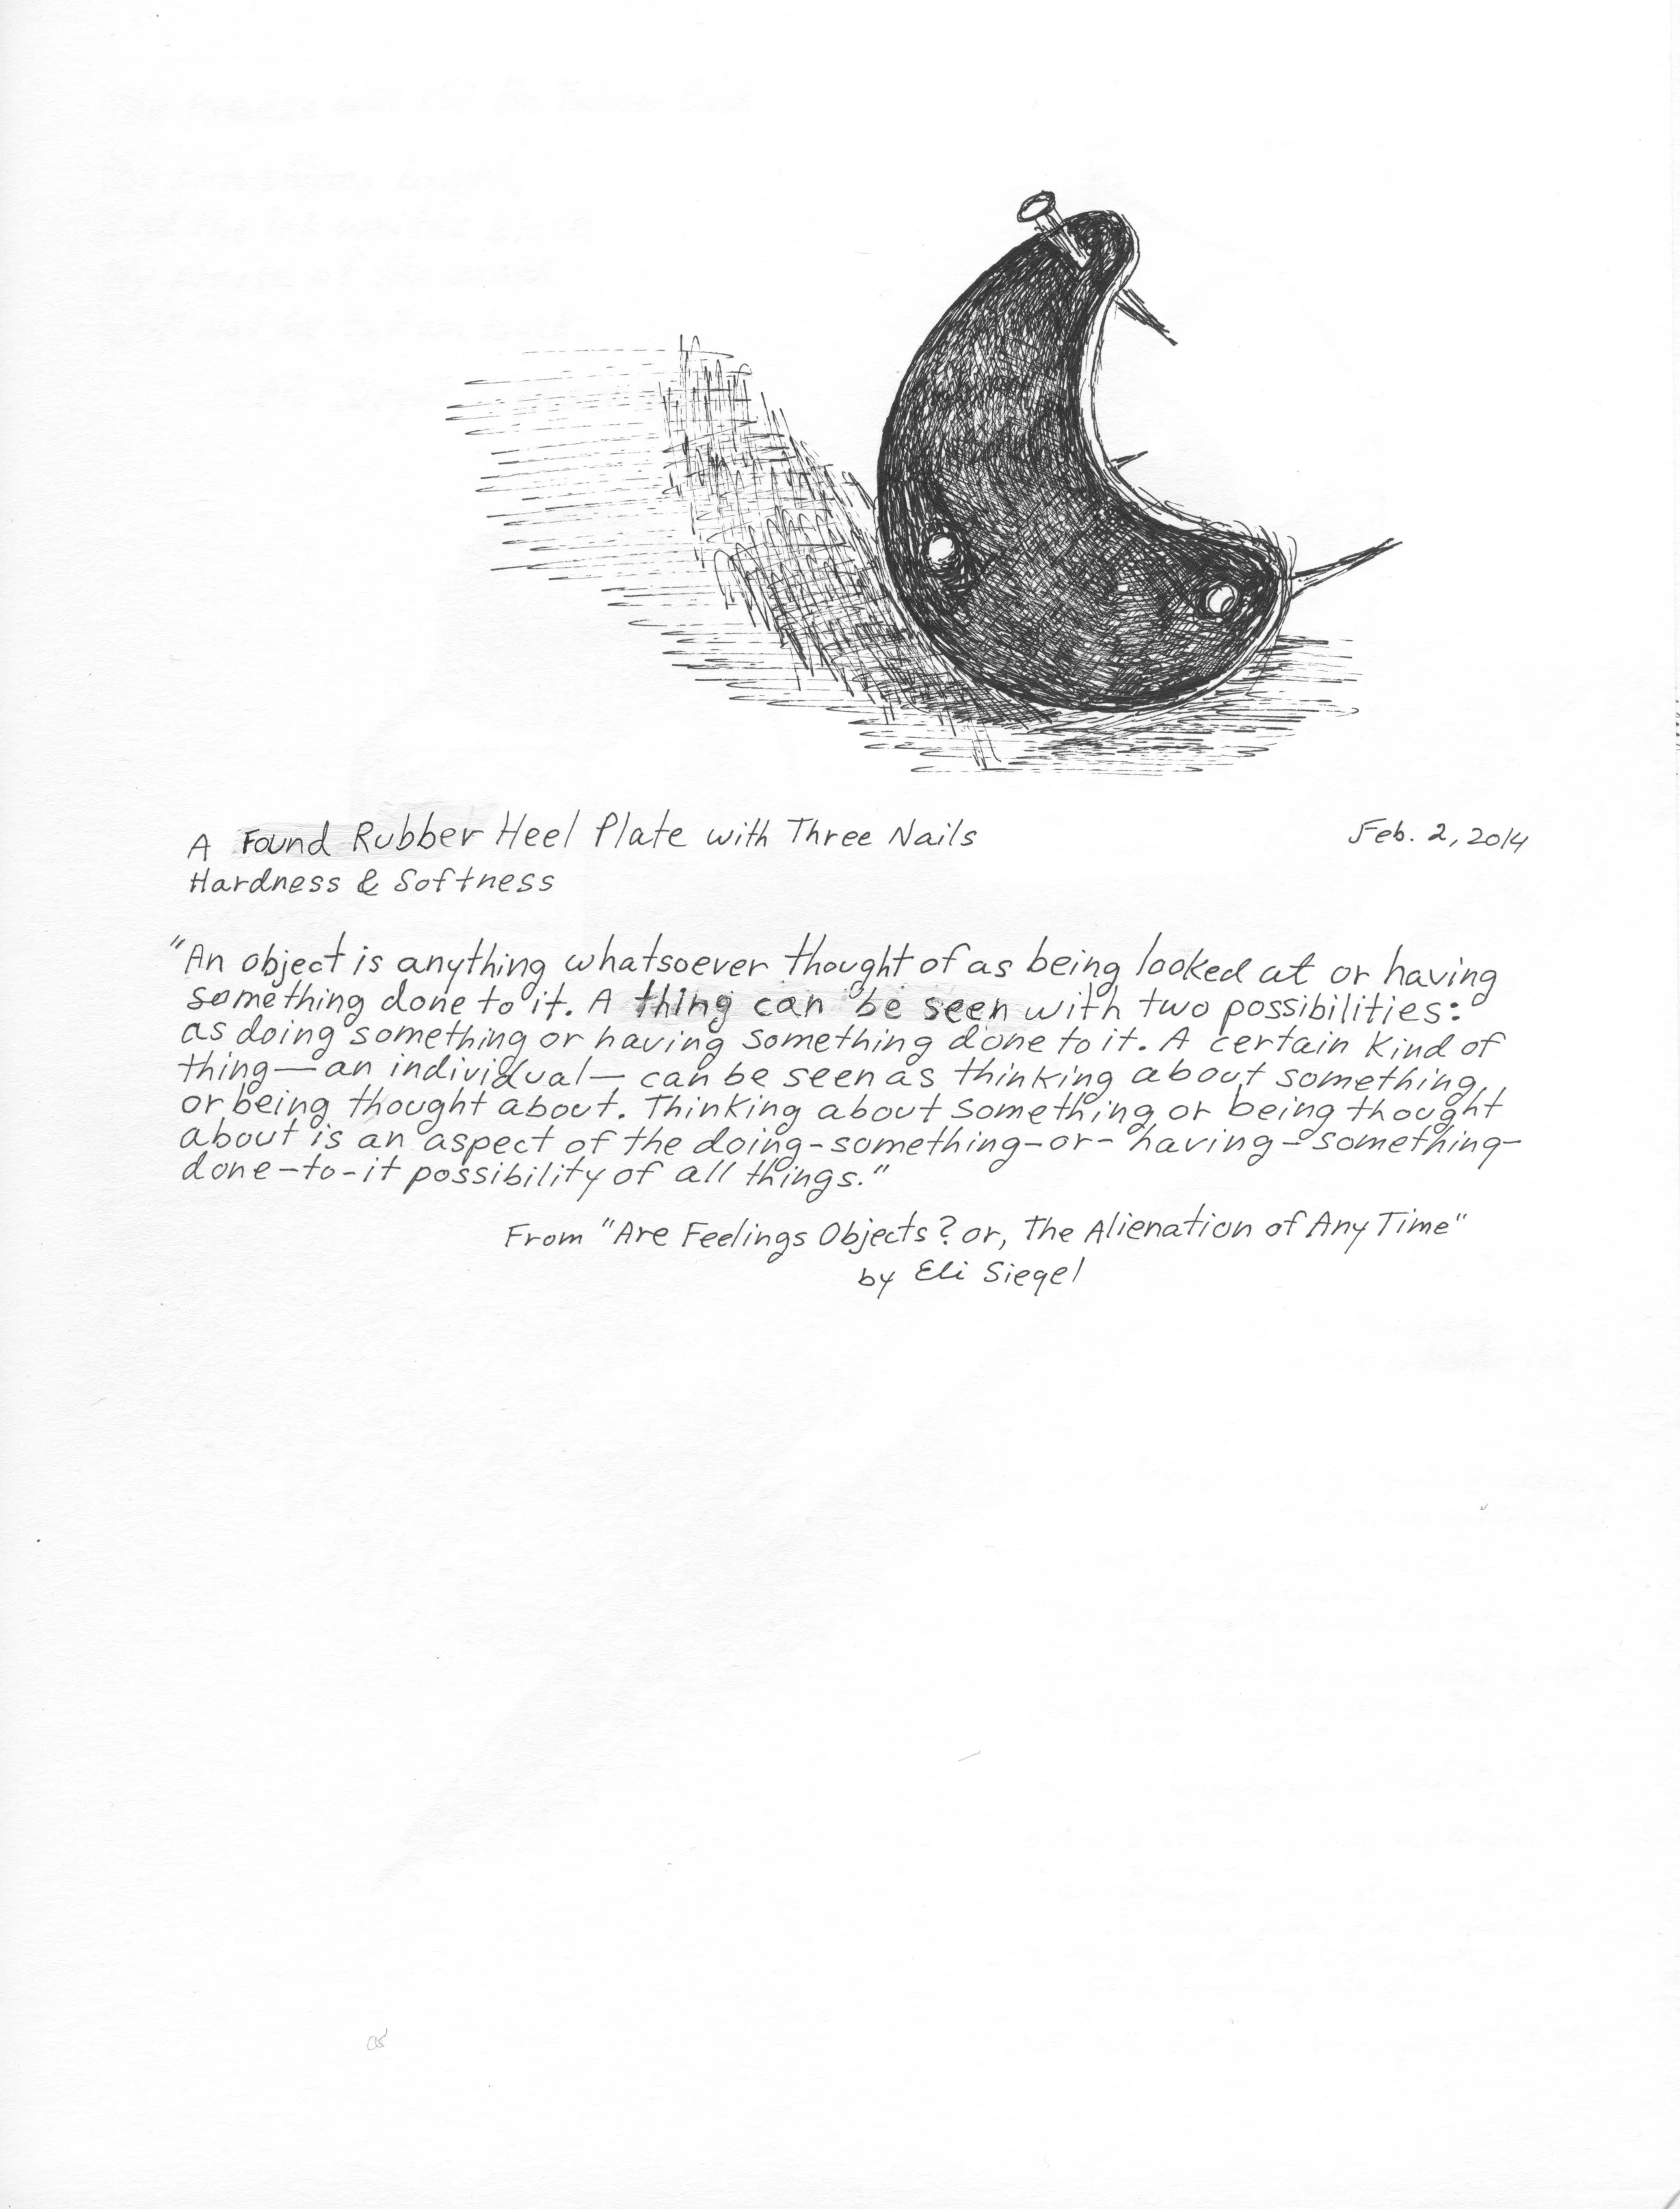 A Found Rubber Heel Plate with Three Nails Feb. 2, 2014
Hardness & Softness
"An object is anything whatsoever thought of as being looked at or having
something done to it. A thing can be seen with two possibilities:
as doing something or having something done to it. A certain kind of
thing—an individual—can be seen as thinking about something,
or being thought about. Thinking about something or being thought
about is an aspect of the doing-something-or-having-something-
done-to-it possibility of all things."
From "Are Feelings Objects? or, The Alienation of Any Time"
by Eli Siegel